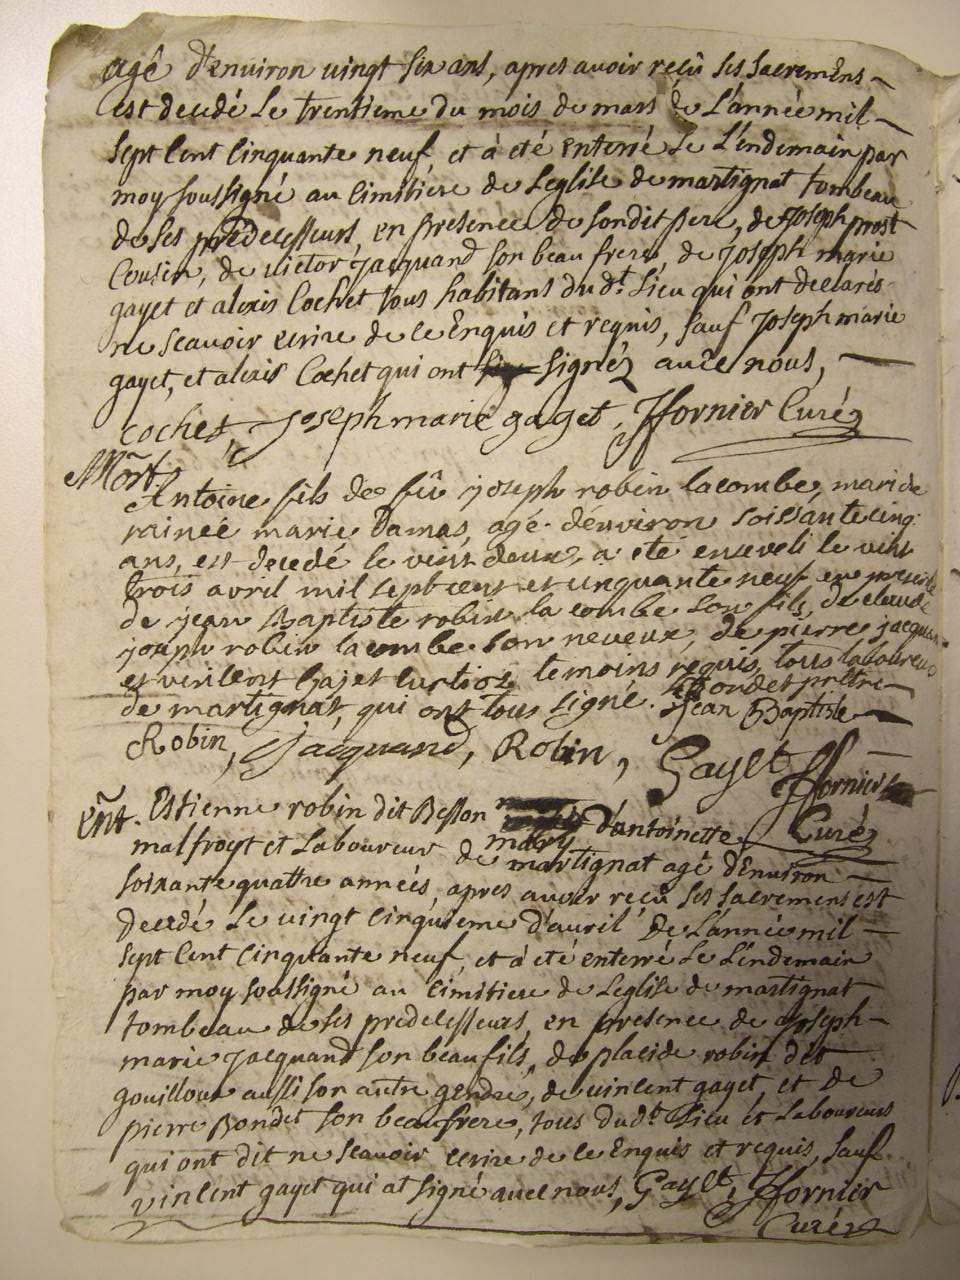 agé d'environ vingt six ans, apres avoir reçû ses sacremens
est decedé le trentieme du mois de mars de L'année mil
sept Cent Cinquante neuf, et à eté enterré Le L'endemain par
moy soussigné au Cimitiere de Leglise de martignat tombeau
de ses predecesseurs, en presence de sondit pere, de Joseph prost
Cousin, de victor Jacquand son beau frere, de Joseph marie
gayet et alexis Cochet tous habitans dud.t Lieu qui ont declarés
ne scavoir ecrire de ce Enquis et requis, sauf Joseph marie
gayet, et alexis Cochet qui ont signéz avec nous,
cochet, Joseph marie gayet, Jfornier Curéz
Mort
Antoine fils de fû joseph robin lacombe, mari de
rainée marie Damas, agé d'environ soissante cinq
ans, est decedé le vint deux, a eté enseveli le vint
trois avril mil sept cent et cinquante neuf en presence
de jean Baptiste robin la combe son fils, de claude
joseph robin lacombe son neveux, de pierre jacquand
et vincent Gajet temoins requis, tous laboureurs
de martignat, qui ont tous signé. Bondet prêtre
Jean Baptiste
Robin, Jacquand, Robin, Gayet Jfornier
Curéz
Ent. Estienne robin dit Besson mary d'antoinette
malfroyt et Laboureur de martignat agé d'Environ
soixante quattre années, apres avoir reçû ses sacremens est
decedé Le vingt Cinquieme d'avril De L'année mil
sept Cent Cinquante neuf, et à eté enterré Le L'endemain
par moy soussigné au Cimitiere de Leglise de martignat
tombeau de ses predecesseurs, en presence de Joseph
marie jacquand son beau fils, de placide robin dit
gouilloux aussi son autre gendre, de vincent gayet et de
pierre Bondet son beaufrere, tous dud.t Lieu et Laboureurs
qui ont dit ne scavoir ecrire de ce Enquis et requis, sauf
vincent gayet qui at signé avec nous, Gayet, Jfornier
Curéz